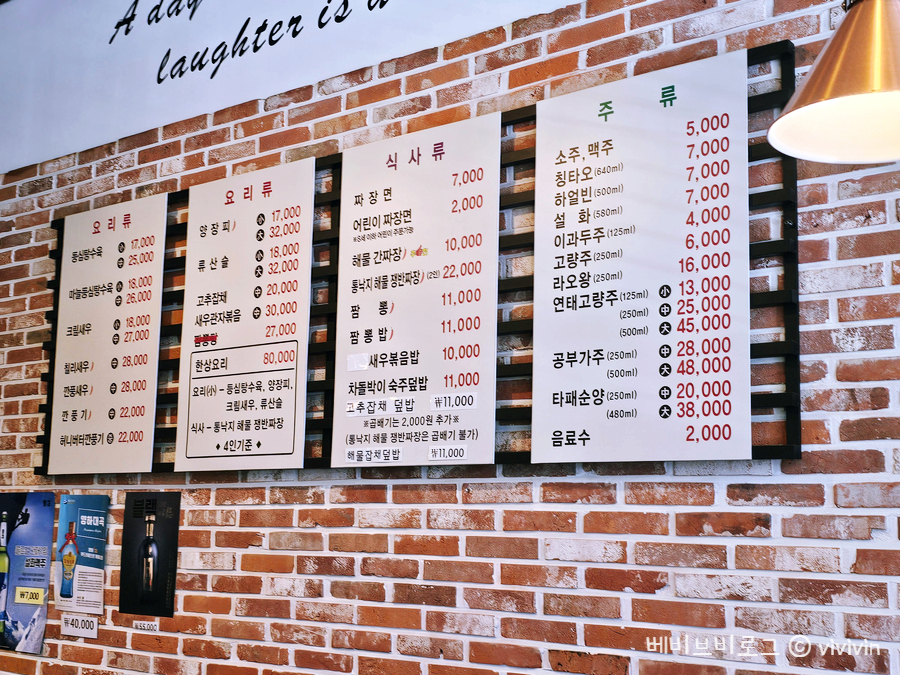 A day
laughter is a
요 리 류
등심탕수육 小 17,000
中 25,000
마늘등심탕수육 小 18,000
中 26,000
크림새우 小 18,000
中 27,000
칠리새우 中 28,000
깐풍새우 中 28,000
깐 풍 기 中 22,000
허니버터깐풍기 中 22,000
요 리 류
양 장 피 小 17,000
大 32,000
류 산 슬 小 18,000
大 32,000
고추잡채 中 20,000
새우관자볶음 中 30,000
27,000
한상요리 80,000
요리(小) – 등심탕수육, 양장피,
크림새우, 류산슬
식사 – 통낙지 해물 쟁반짜장
◆ 4인기준 ◆
식 사 류
짜 장 면 7,000
어린이 짜장면 2,000
※8세 이하 어린이 주문가능
해물 간짜장 10,000
통낙지 해물 쟁반짜장 (2인) 22,000
짬 뽕 11,000
짬 뽕 밥 11,000
새우볶음밥 10,000
차돌박이 숙주덮밥 11,000
고추잡채 덮밥 ₩11,000
※곱배기는 2,000원 추가※
(통낙지 해물 쟁반짜장은 곱배기 불가)
해물잡채덮밥 ₩11,000
주 류
소주, 맥주 5,000
칭타오 (640ml) 7,000
하얼빈 (500ml) 7,000
설 화 (580ml) 7,000
이과두주 (125ml) 4,000
고량주 (250ml) 6,000
라오왕 (250ml) 16,000
연태고량주 (125ml) 小 13,000
(250ml) 中 25,000
(500ml) 大 45,000
공부가주 (250ml) 中 28,000
(500ml) 大 48,000
타패순양 (250ml) 中 20,000
(480ml) 大 38,000
음료수 2,000
₩7,000
양하대곡
₩40,000
블랙
₩55,000
베비브비로그 © vivivin